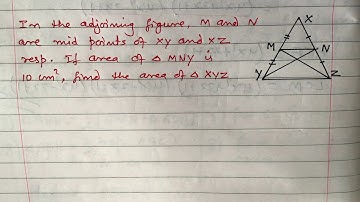 Im the adjoining figure, M and N
are mid points of XY and XZ
resp. If area of Δ MNY is
10 cm², find the area of Δ XYZ
X
M
N
Y
Z